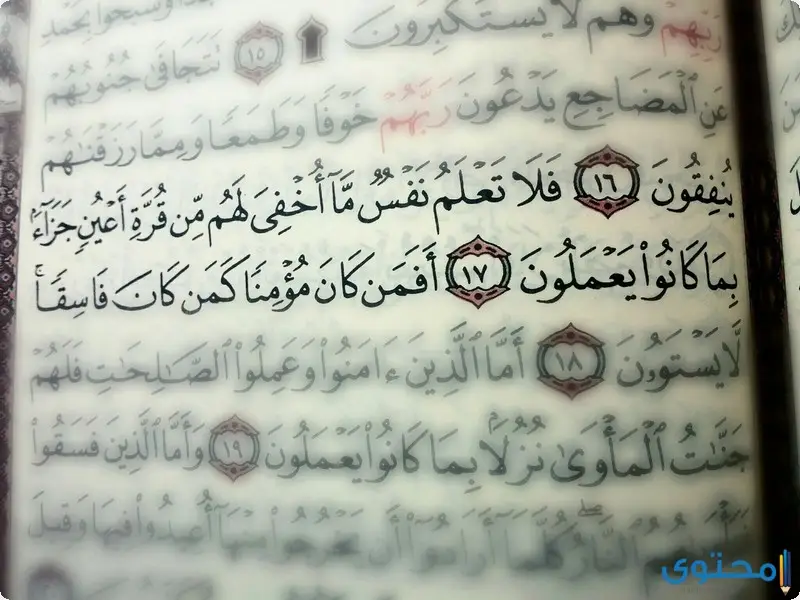 رَبِّهِمْ وَهُمْ لَا يَسْتَكْبِرُونَ ۩ ١٥ تَتَجَافَىٰ جُنُوبُهُمْ
عَنِ ٱلْمَضَاجِعِ يَدْعُونَ رَبَّهُمْ خَوْفًا وَطَمَعًا وَمِمَّا رَزَقْنَٰهُمْ
يُنفِقُونَ ١٦ فَلَا تَعْلَمُ نَفْسٌ مَّآ أُخْفِىَ لَهُم مِّن قُرَّةِ أَعْيُنٍ جَزَآءًۢ
بِمَا كَانُوا۟ يَعْمَلُونَ ١٧ أَفَمَن كَانَ مُؤْمِنًا كَمَن كَانَ فَاسِقًا ۚ
لَّا يَسْتَوُۥنَ ١٨ أَمَّا ٱلَّذِينَ ءَامَنُوا۟ وَعَمِلُوا۟ ٱلصَّٰلِحَٰتِ فَلَهُمْ
جَنَّٰتُ ٱلْمَأْوَىٰ نُزُلًۢا بِمَا كَانُوا۟ يَعْمَلُونَ ١٩ وَأَمَّا ٱلَّذِينَ فَسَقُوا۟
ٱلنَّارُ كُلَّمَآ أَرَادُوٓا۟ أَن يَخْرُجُوا۟ مِنْهَآ أُعِيدُوا۟ فِيهَا وَقِيلَ
محتوى